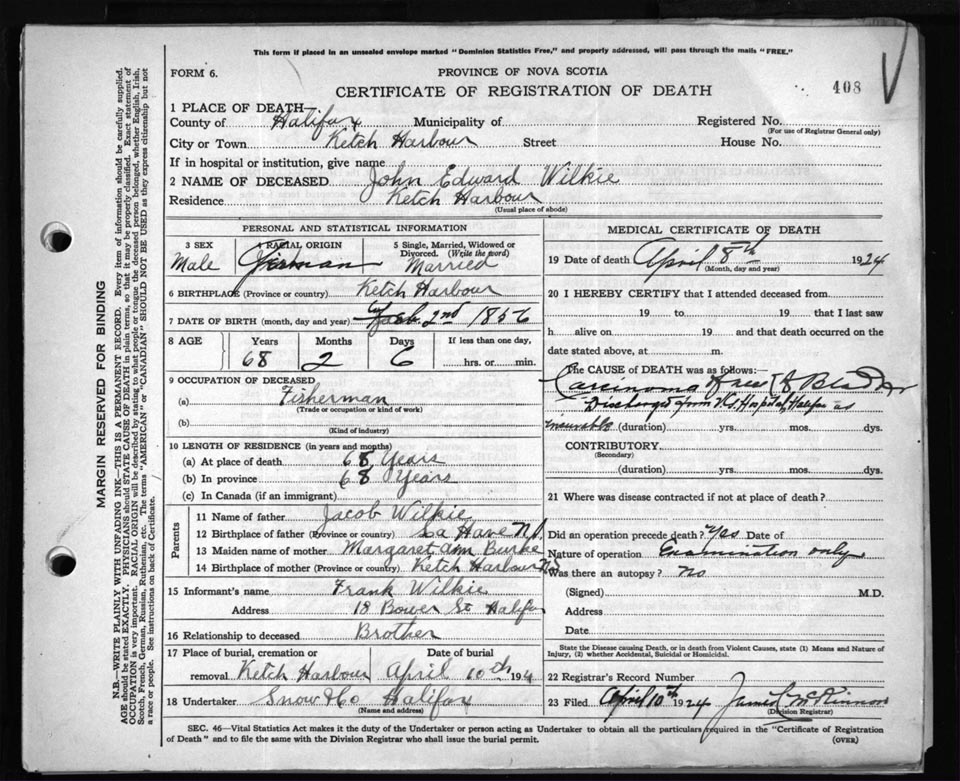 This form if placed in an unsealed envelope marked "Dominion Statistics Free," and properly addressed, will pass through the mails "FREE."
FORM 6.
PROVINCE OF NOVA SCOTIA
CERTIFICATE OF REGISTRATION OF DEATH
408
1 PLACE OF DEATH—
County of Halifax Municipality of Registered No.
(For use of Registrar General only)
City or Town Ketch Harbour Street House No.
If in hospital or institution, give name
2 NAME OF DECEASED John Edward Wilkie
Residence Ketch Harbour
(Usual place of abode)
PERSONAL AND STATISTICAL INFORMATION
3 SEX 4 RACIAL ORIGIN 5 Single, Married, Widowed or Divorced. (Write the word)
Male German Married
6 BIRTHPLACE (Province or country) Ketch Harbour
7 DATE OF BIRTH (month, day and year) 2nd 1856
8 AGE Years Months Days If less than one day,
68 2 6 hrs. or min.
9 OCCUPATION OF DECEASED
(a) Fisherman
(Trade or occupation or kind of work)
(b)
(Kind of industry)
10 LENGTH OF RESIDENCE (in years and months)
(a) At place of death 68 Years
(b) In province 68 Years
(c) In Canada (if an immigrant)
Parents
11 Name of father Jacob Wilkie
12 Birthplace of father (Province or country) La Have N.S.
13 Maiden name of mother Margaret Ann Burke
14 Birthplace of mother (Province or country) Ketch Harbour N.S.
15 Informant's name Frank Wilkie
Address 18 Bower St Halifax
16 Relationship to deceased Brother
17 Place of burial, cremation or removal Date of burial
Ketch Harbour April 10th 1924
18 Undertaker Snow & Co Halifax
(Name and address)
MEDICAL CERTIFICATE OF DEATH
19 Date of death April 8th 1924
(Month, day and year)
20 I HEREBY CERTIFY that I attended deceased from
19 to 19 that I last saw
h alive on 19 and that death occurred on the
date stated above, at m.
The CAUSE OF DEATH was as follows:
Carcinoma of neck of Bladder
Discharged from V.G. Hospital, Halifax as
incurable (duration) yrs. mos. dys.
CONTRIBUTORY
(Secondary)
(duration) yrs. mos. dys.
21 Where was disease contracted if not at place of death?
Did an operation precede death? Yes Date of
Nature of operation Examination only
Was there an autopsy? No
(Signed) M.D.
Address
Date
State the Disease causing Death, or in death from Violent Causes, state (1) Means and Nature of Injury, (2) whether Accidental, Suicidal or Homicidal.
22 Registrar's Record Number
23 Filed April 10th 1924 James McKinnon
(Division Registrar)
SEC. 46—Vital Statistics Act makes it the duty of the Undertaker or person acting as Undertaker to obtain all the particulars required in the "Certificate of Registration
of Death" and to file the same with the Division Registrar who shall issue the burial permit.
(OVER)
MARGIN RESERVED FOR BINDING
N.B.—WRITE PLAINLY WITH UNFADING INK—THIS IS A PERMANENT RECORD. Every item of information should be carefully supplied.
AGE should be stated EXACTLY. PHYSICIANS should STATE CAUSE OF DEATH in plain terms, so that it may be properly classified. Exact statement of
OCCUPATION is very important. RACIAL ORIGIN will be described by stating to what people or tongue the deceased person belonged, whether English, Irish,
Scotch, French, German, Russian, Ruthenian, etc. The terms "AMERICAN" or "CANADIAN" SHOULD NOT BE USED as they express citizenship but not
a race or people. See instructions on back of Certificate.